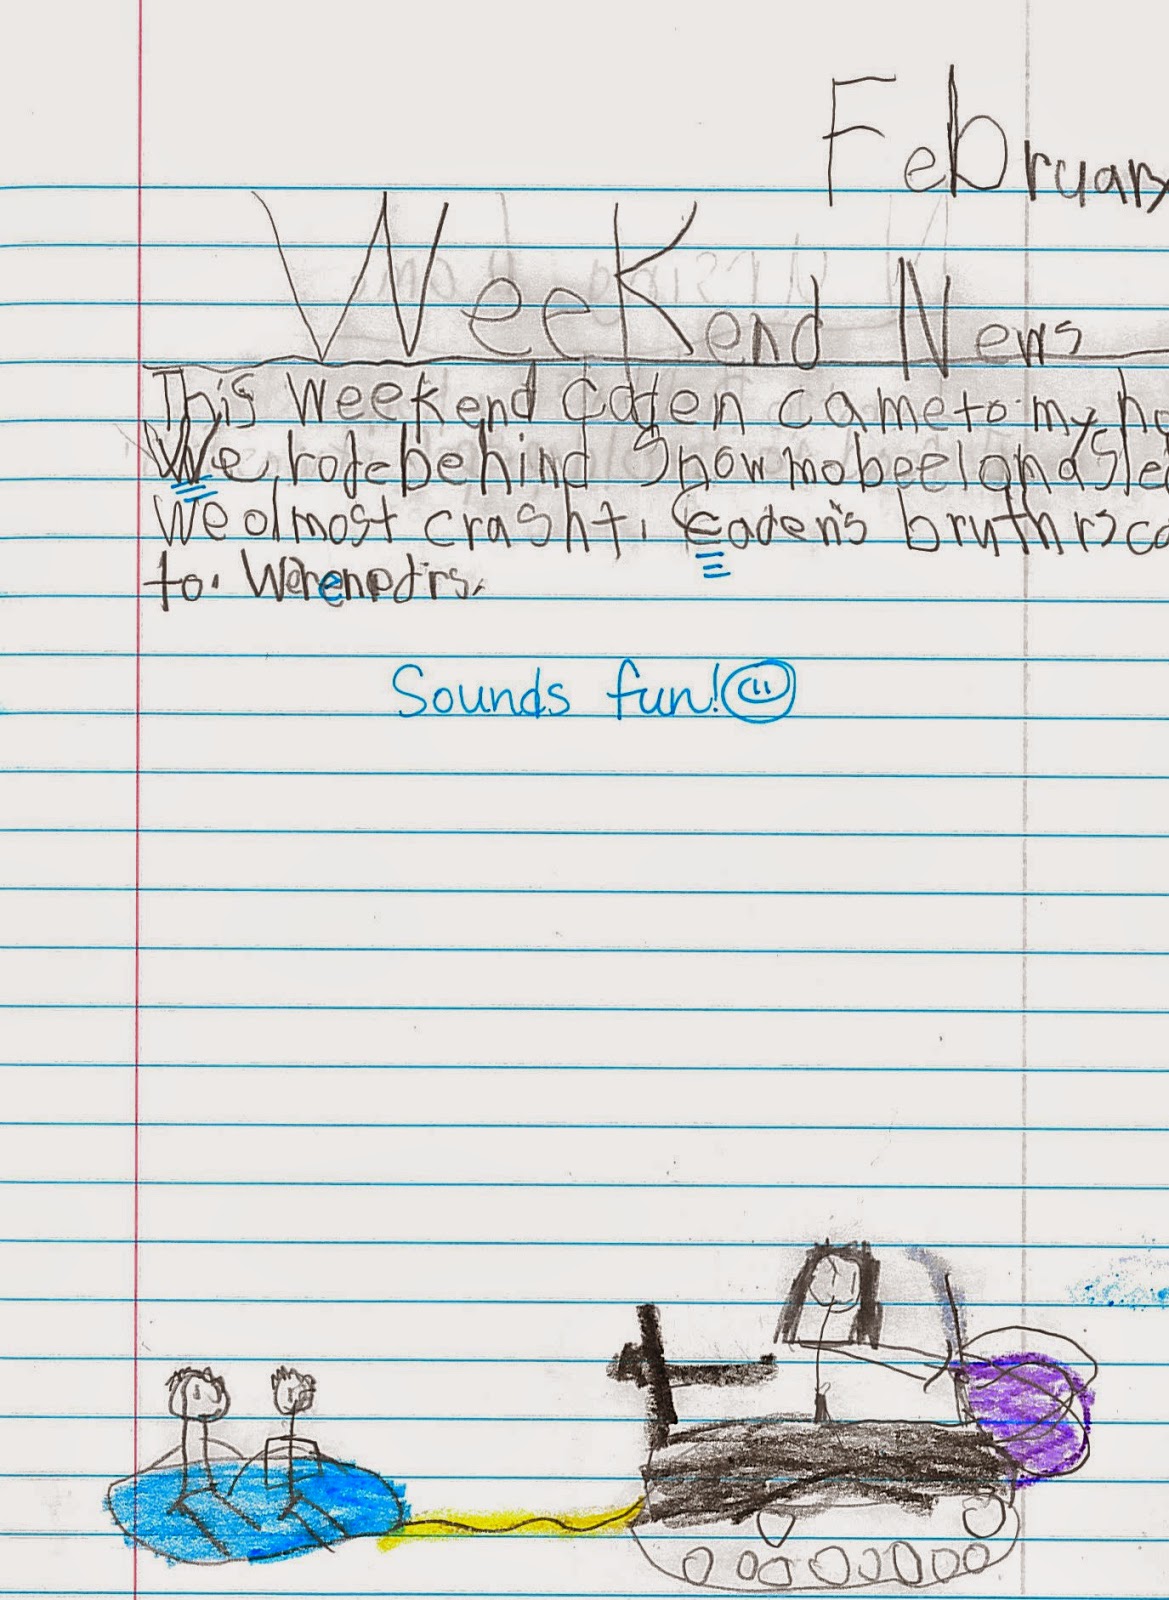 February
WeeKend News
This weekend Caden came to my ho
We rode behind Snowmobeel and Sle
We olmost crasht. Caden's bruthrs ca
to. Wer enedrs.
Sounds fun!